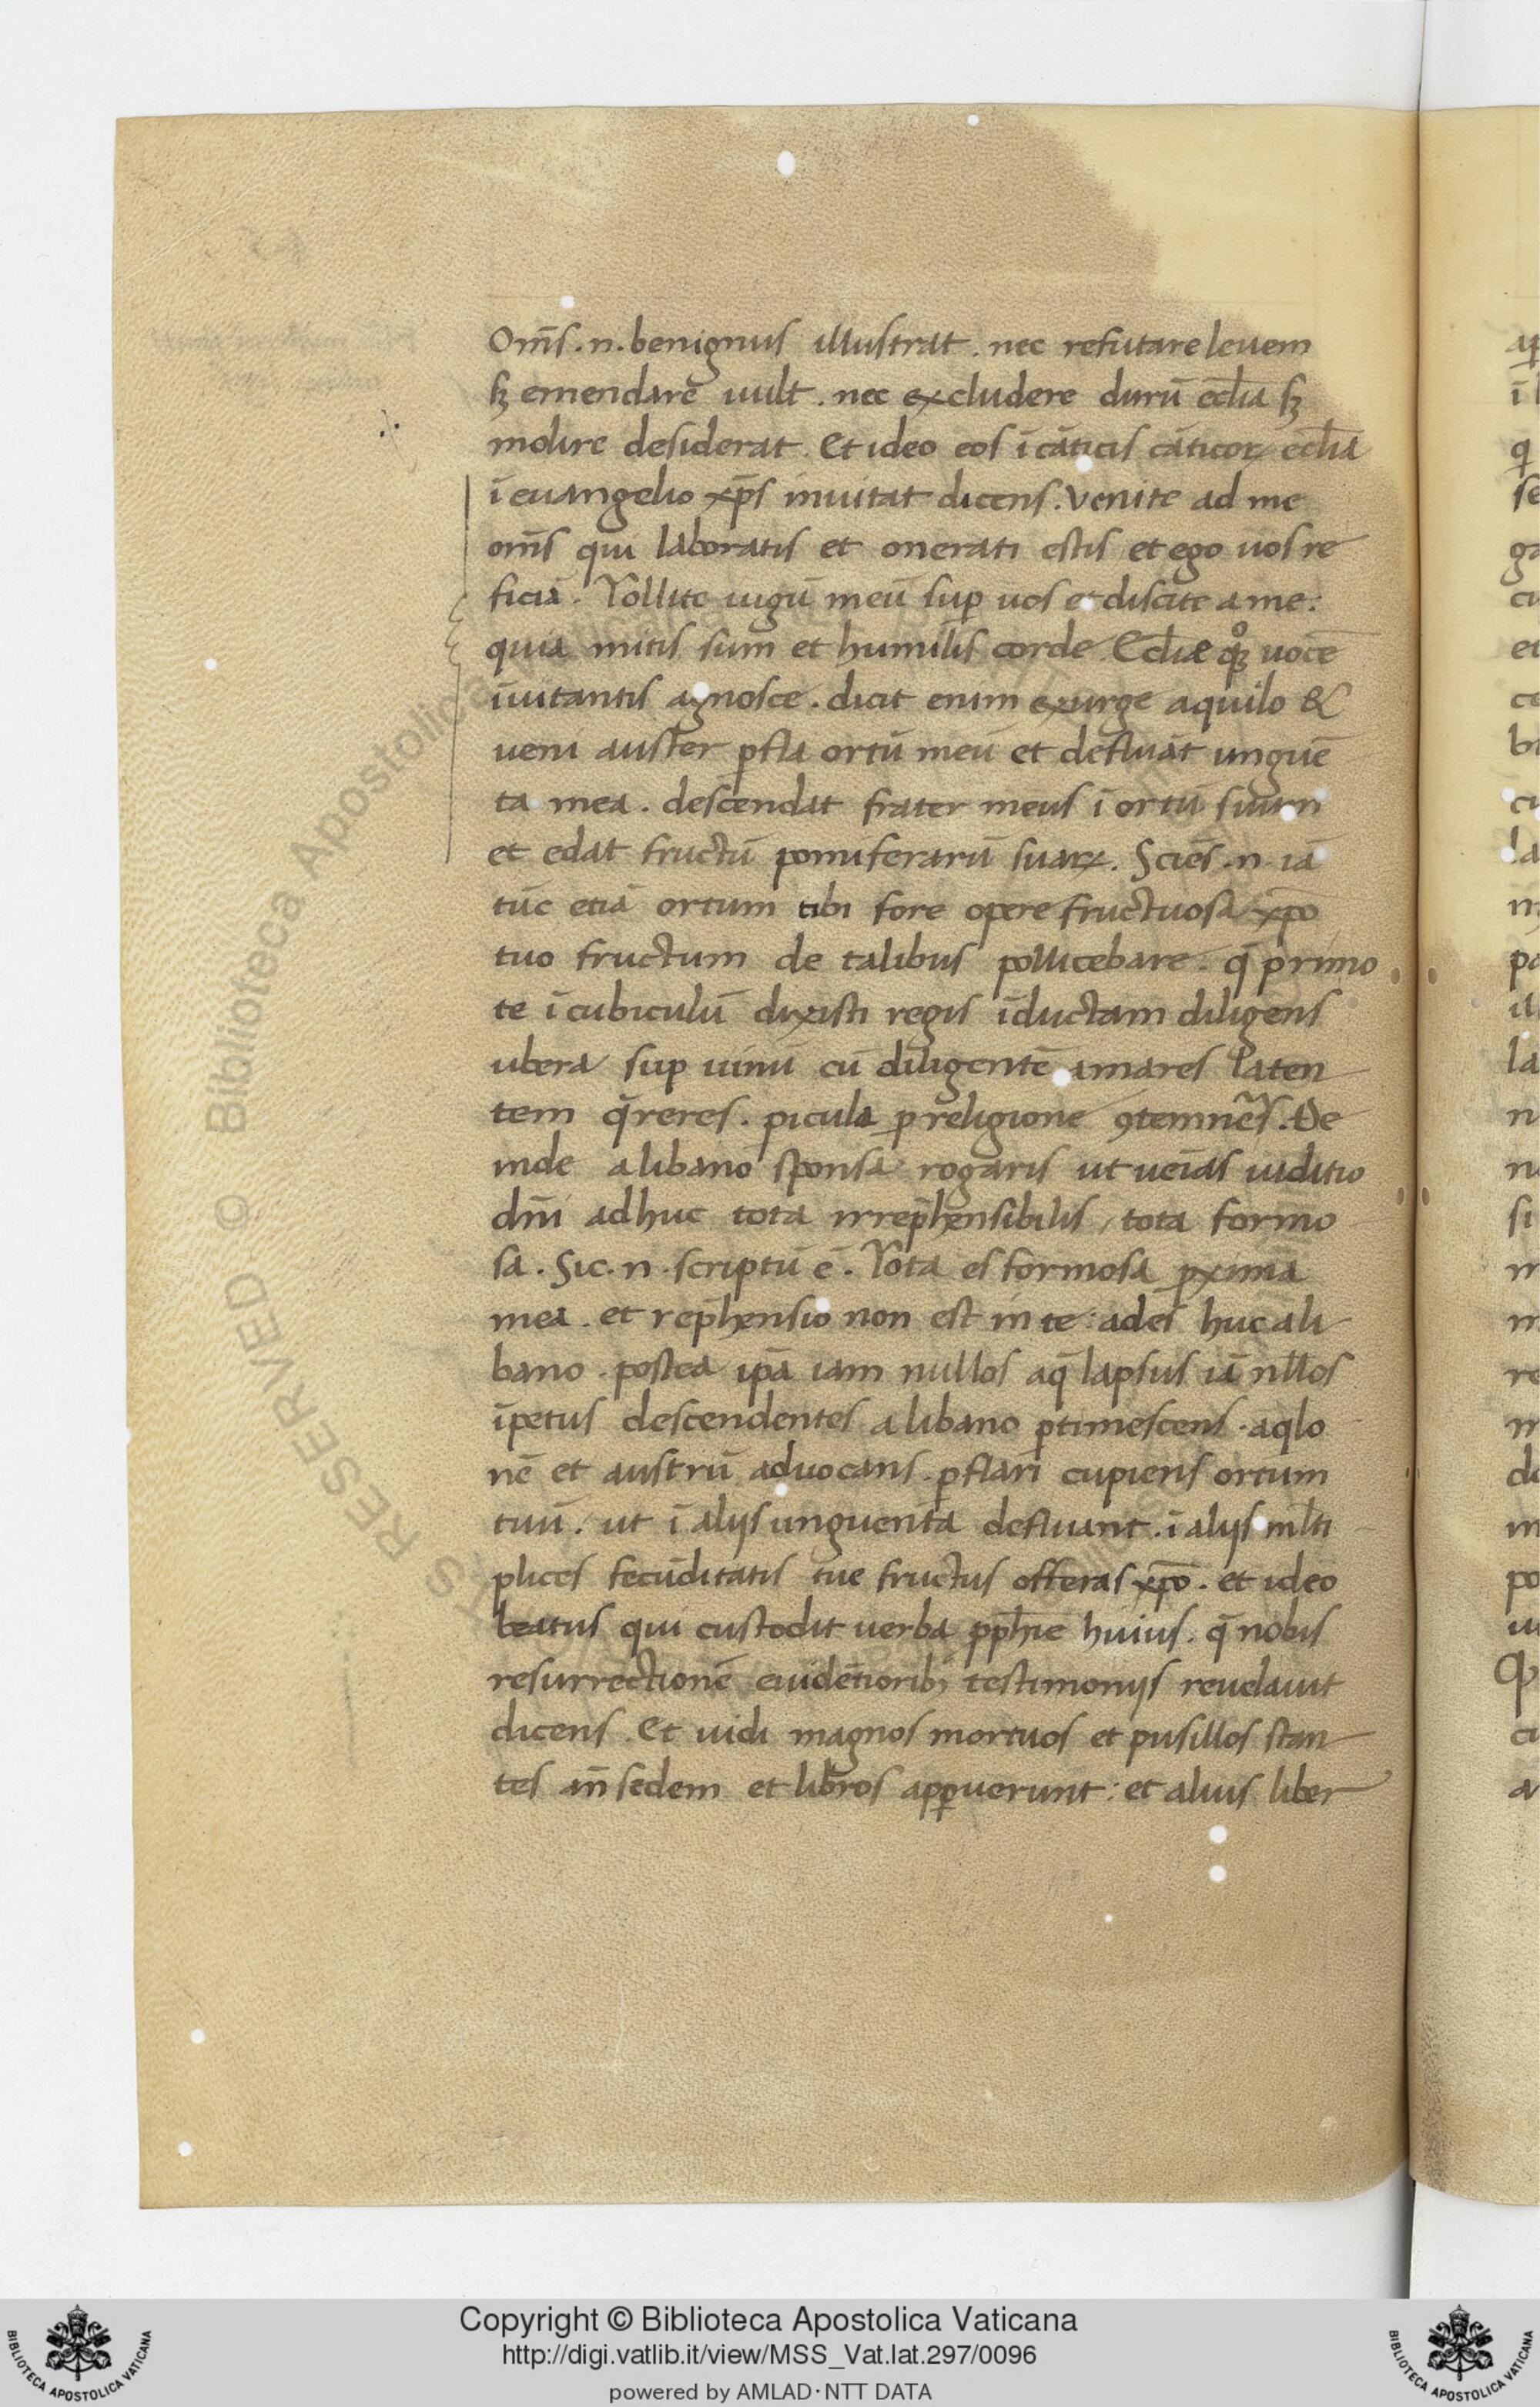 Om̄s .n. benignus illustrat . nec refutare leuem
sꝫ emendare uult . nec excludere durū eccl̄ia sꝫ
molire desiderat . Et ideo eos ī cāticis cāticoꝝ eccl̄ia
ī euangelio xp̄s inuitat dicens . Venite ad me
om̄s qui laboratis et onerati estis et ego uos re
ficiā . Tollite iugū meū suꝑ uos et discite a me :
quia mitis sum et humilis corde . Eccl̄iæ qͦꝫ uocē
īuitantis agnosce . dicit enim exurge aquilo &
ueni auster ꝑfla ortū meū et defluāt unguē
ta mea . descendat frater meus ī ortū suum
et edat fructū pomiferarū suaꝝ . Sciēs .n. iā
tūc etiā ortum tibi fore opere fructuosa xp̄o
tuo fructum de talibus pollicebare . q̄ primo
te ī cubiculū dixisti regis īductam diligens
ubera suꝑ uinū cū diligentē amares laten
tem q̄reres . ꝑicula ꝓ religione ꝯtemnēs . De
inde a libano sponsa rogaris ut ueīas iuditio
dn̄i adhuc tota irrep̄hensibilis , tota formo
sa . Sic .n. scriptū ē . Tota es formosa ꝓxima
mea . et rep̄hensio non est in te : ades huc a li
bano . postea ip̄a iam nullos aq̄ lapsus iā nl̄los
īpetus descendentes a libano ꝑtimescens . aqlo
nē et austrū aduocans . ꝑflari cupiens ortum
tuū . ut ī alijs unguenta defluant . ī alijs ml̄ti
plices fecūditatis tue fructus offeras xp̄o . et ideo
beatus qui custodit uerba ꝓph̄ie huius . q̄ nobis
resurrectionē euidētioribꝫ testimonijs reuelauit
dicens . Et uidi magnos mortuos et pusillos stan
tes an̄ sedem et libros apꝑuerunt : et alius liber
Copyright © Biblioteca Apostolica Vaticana
http://digi.vatlib.it/view/MSS_Vat.lat.297/0096
powered by AMLAD·NTT DATA